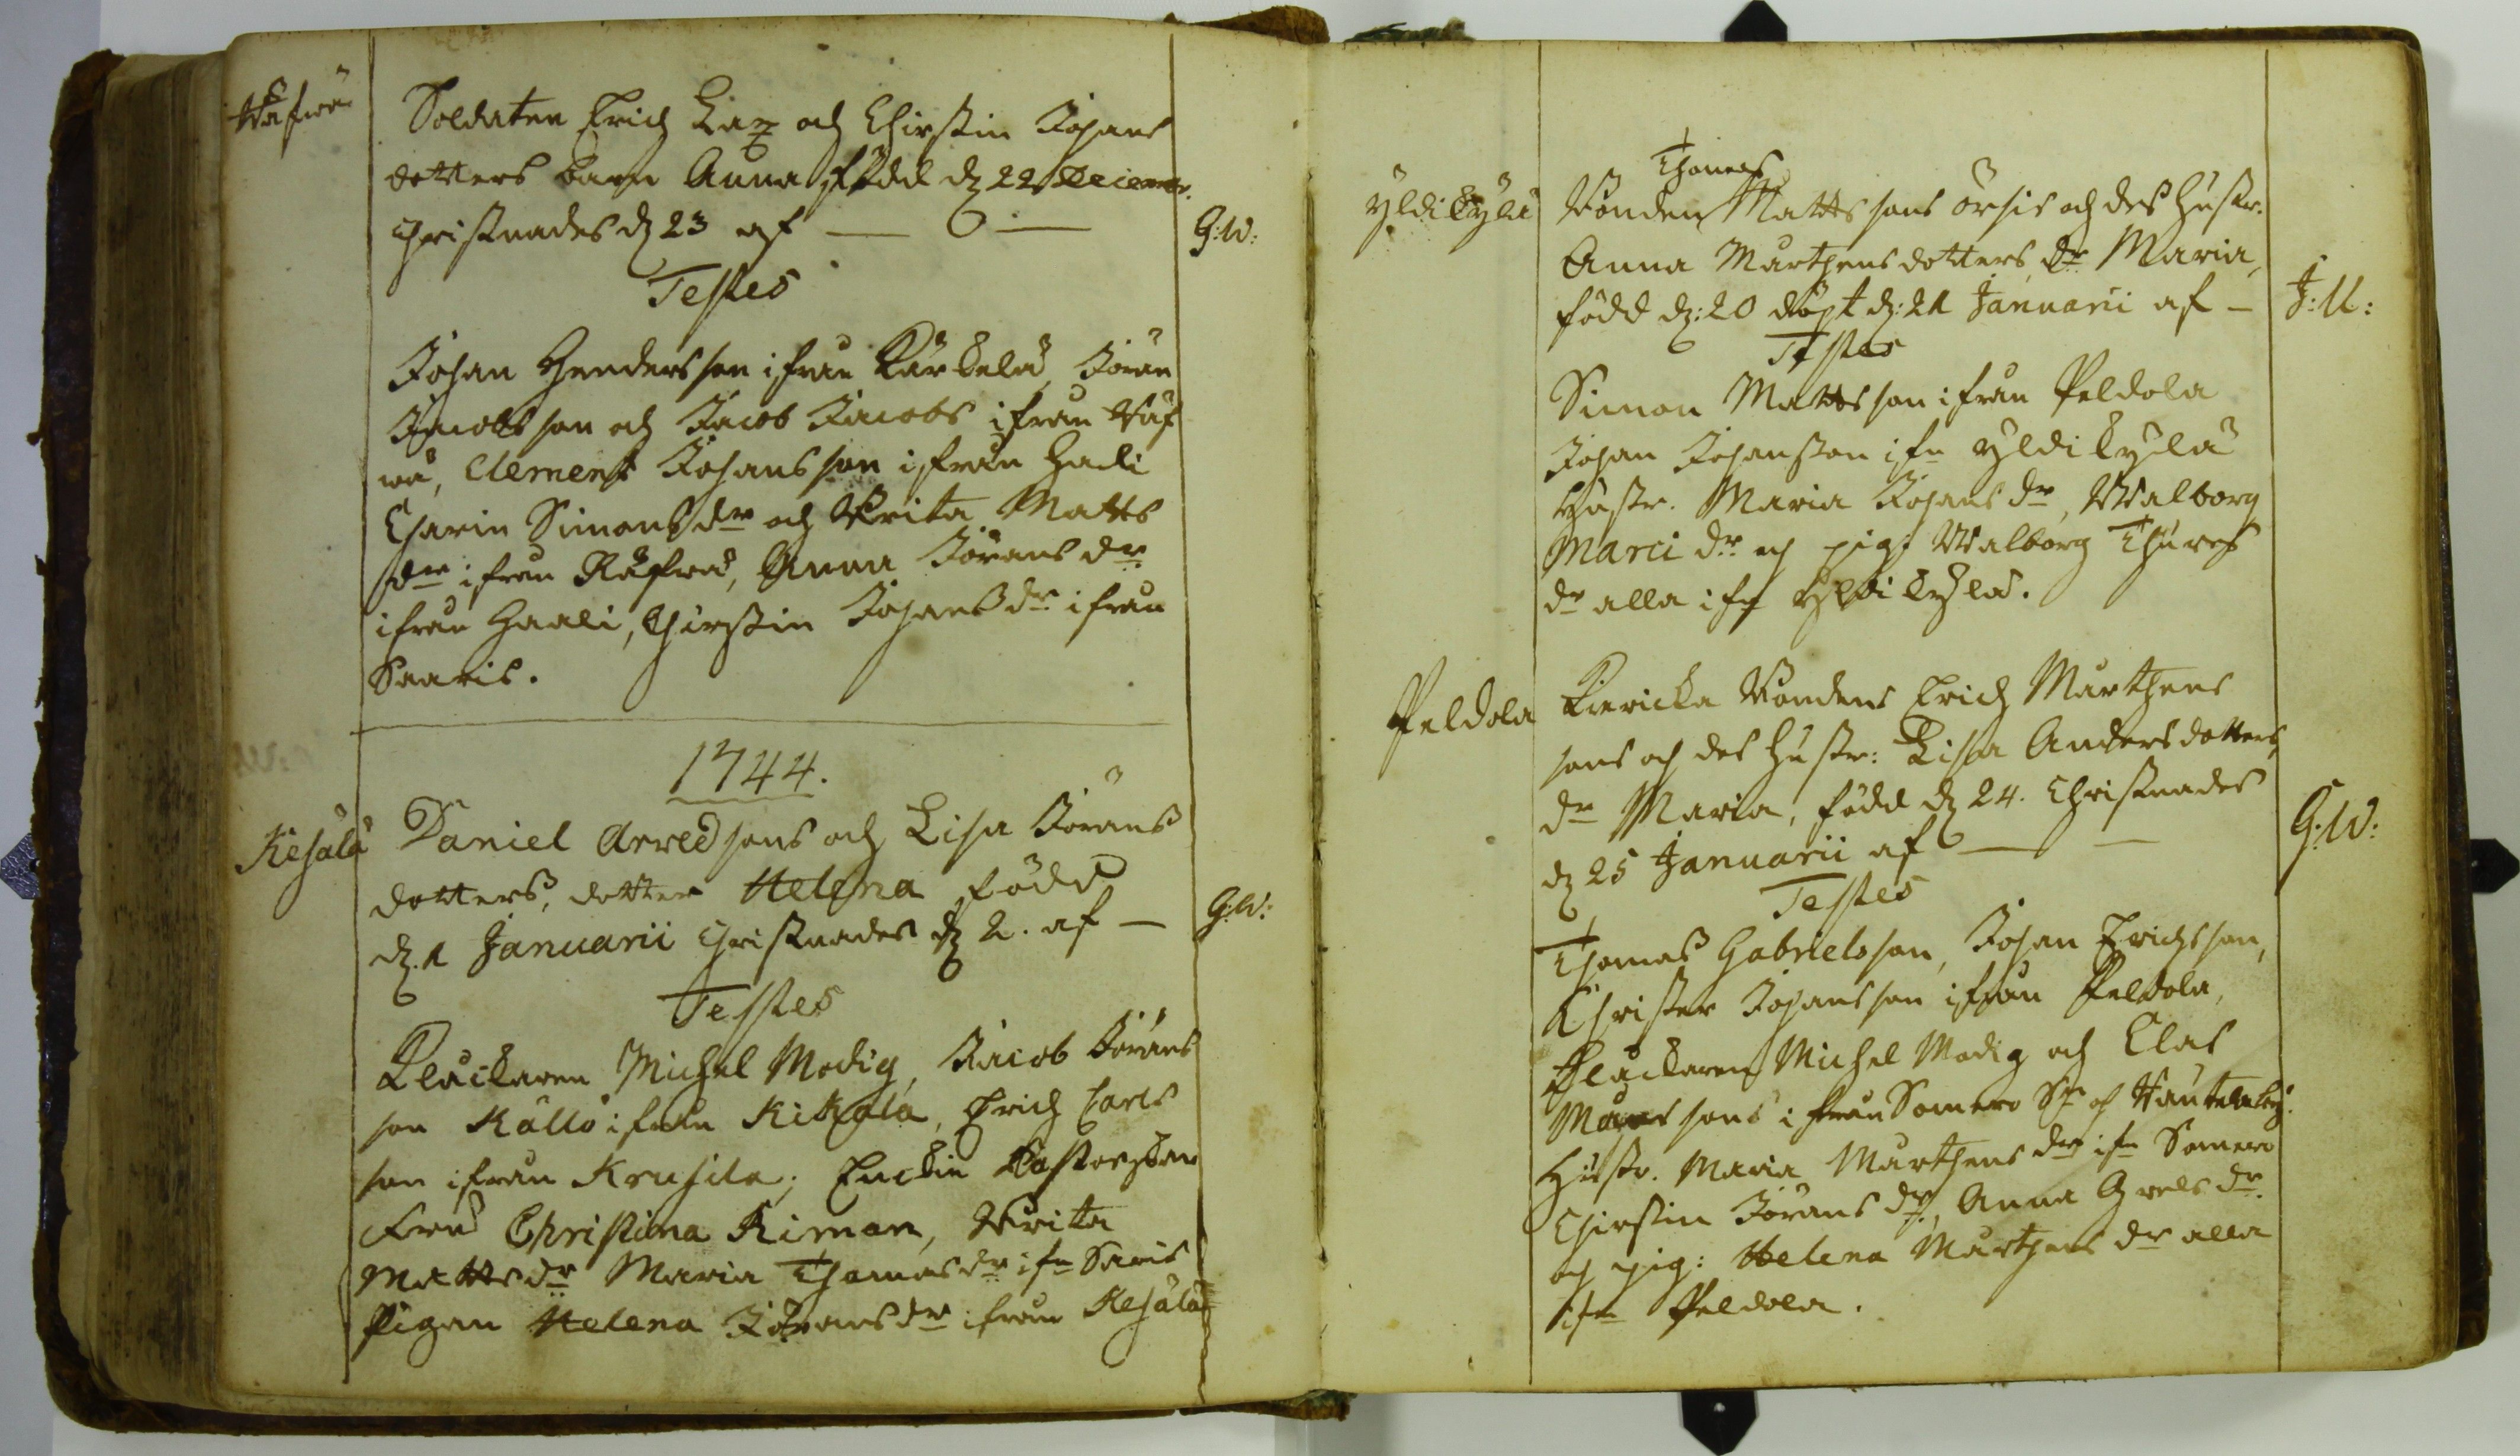 Råfwå
Soldaten Erich Lax och Chirstin Johans
dotters barn Anna född dz 22 Decembr.
Christnades dz 23 af — — G:W:
Testes
Johan Hendersson ifrån Kärkelä, Jöran
Jacobsson och Jacob Jacobs ifrån Råf
wå, Clement Johansson ifrån Hali
Charin Simonsdr och Brita Matts
dr ifrån Råfwå, Anna Jöransdr
ifrån Haali, Chirstin Johansdr ifrån
Saaris.
1744.
Kesälä Daniel Arvedsons och Lisa Jörans
dotters, dotter Helena född
dz. 1 Januarii Christnades dz 2. af — G:W:
Testes
Klåckaren Michel Modig, Jacob Jörans
son Källo ifrån Kikala, Erich Carls
son ifrån Krusila; Enckie Pastorskan
Fru Christina Kiman, Brita
Mattsdr Maria Thomasdr ifn Saris
Pigan Helena Jöransdr ifrån Kesälä
Thomas
Yldikylä Bonden Mattssons Örsis och des Hustr.
Anna Mårthensdotters, dr Maria,
född dz: 20 döpt dz: 21 Januarii af — J:U:
Testes
Simon Mattsson ifrån Peldola
Johan Johansson ifn Yldikylä
Hustr. Maria Johansdr, Walborg
Marci dr och pig: Walborg Thures
dr alla ifn Yldikylä.
Peldola Bonden Erich Mårthens
sons och des Hustr: Lisa Andersdotters,
dr Maria, född dz 24. Christnades
dz 25 Januarii af — — G:W:
Testes
Thomas Gabrielsson, Johan Erichsson,
Christer Johansson ifrån Peldola,
Klåckaren Michel Modig och Clas
Månssons ifrån Somero
Hustr. Maria Mårthensdr ifn Somero
Chirstin Jöransdr, Anna Grelsdr
och pig: Helena Mårthensdr alla
ifn Peldola.